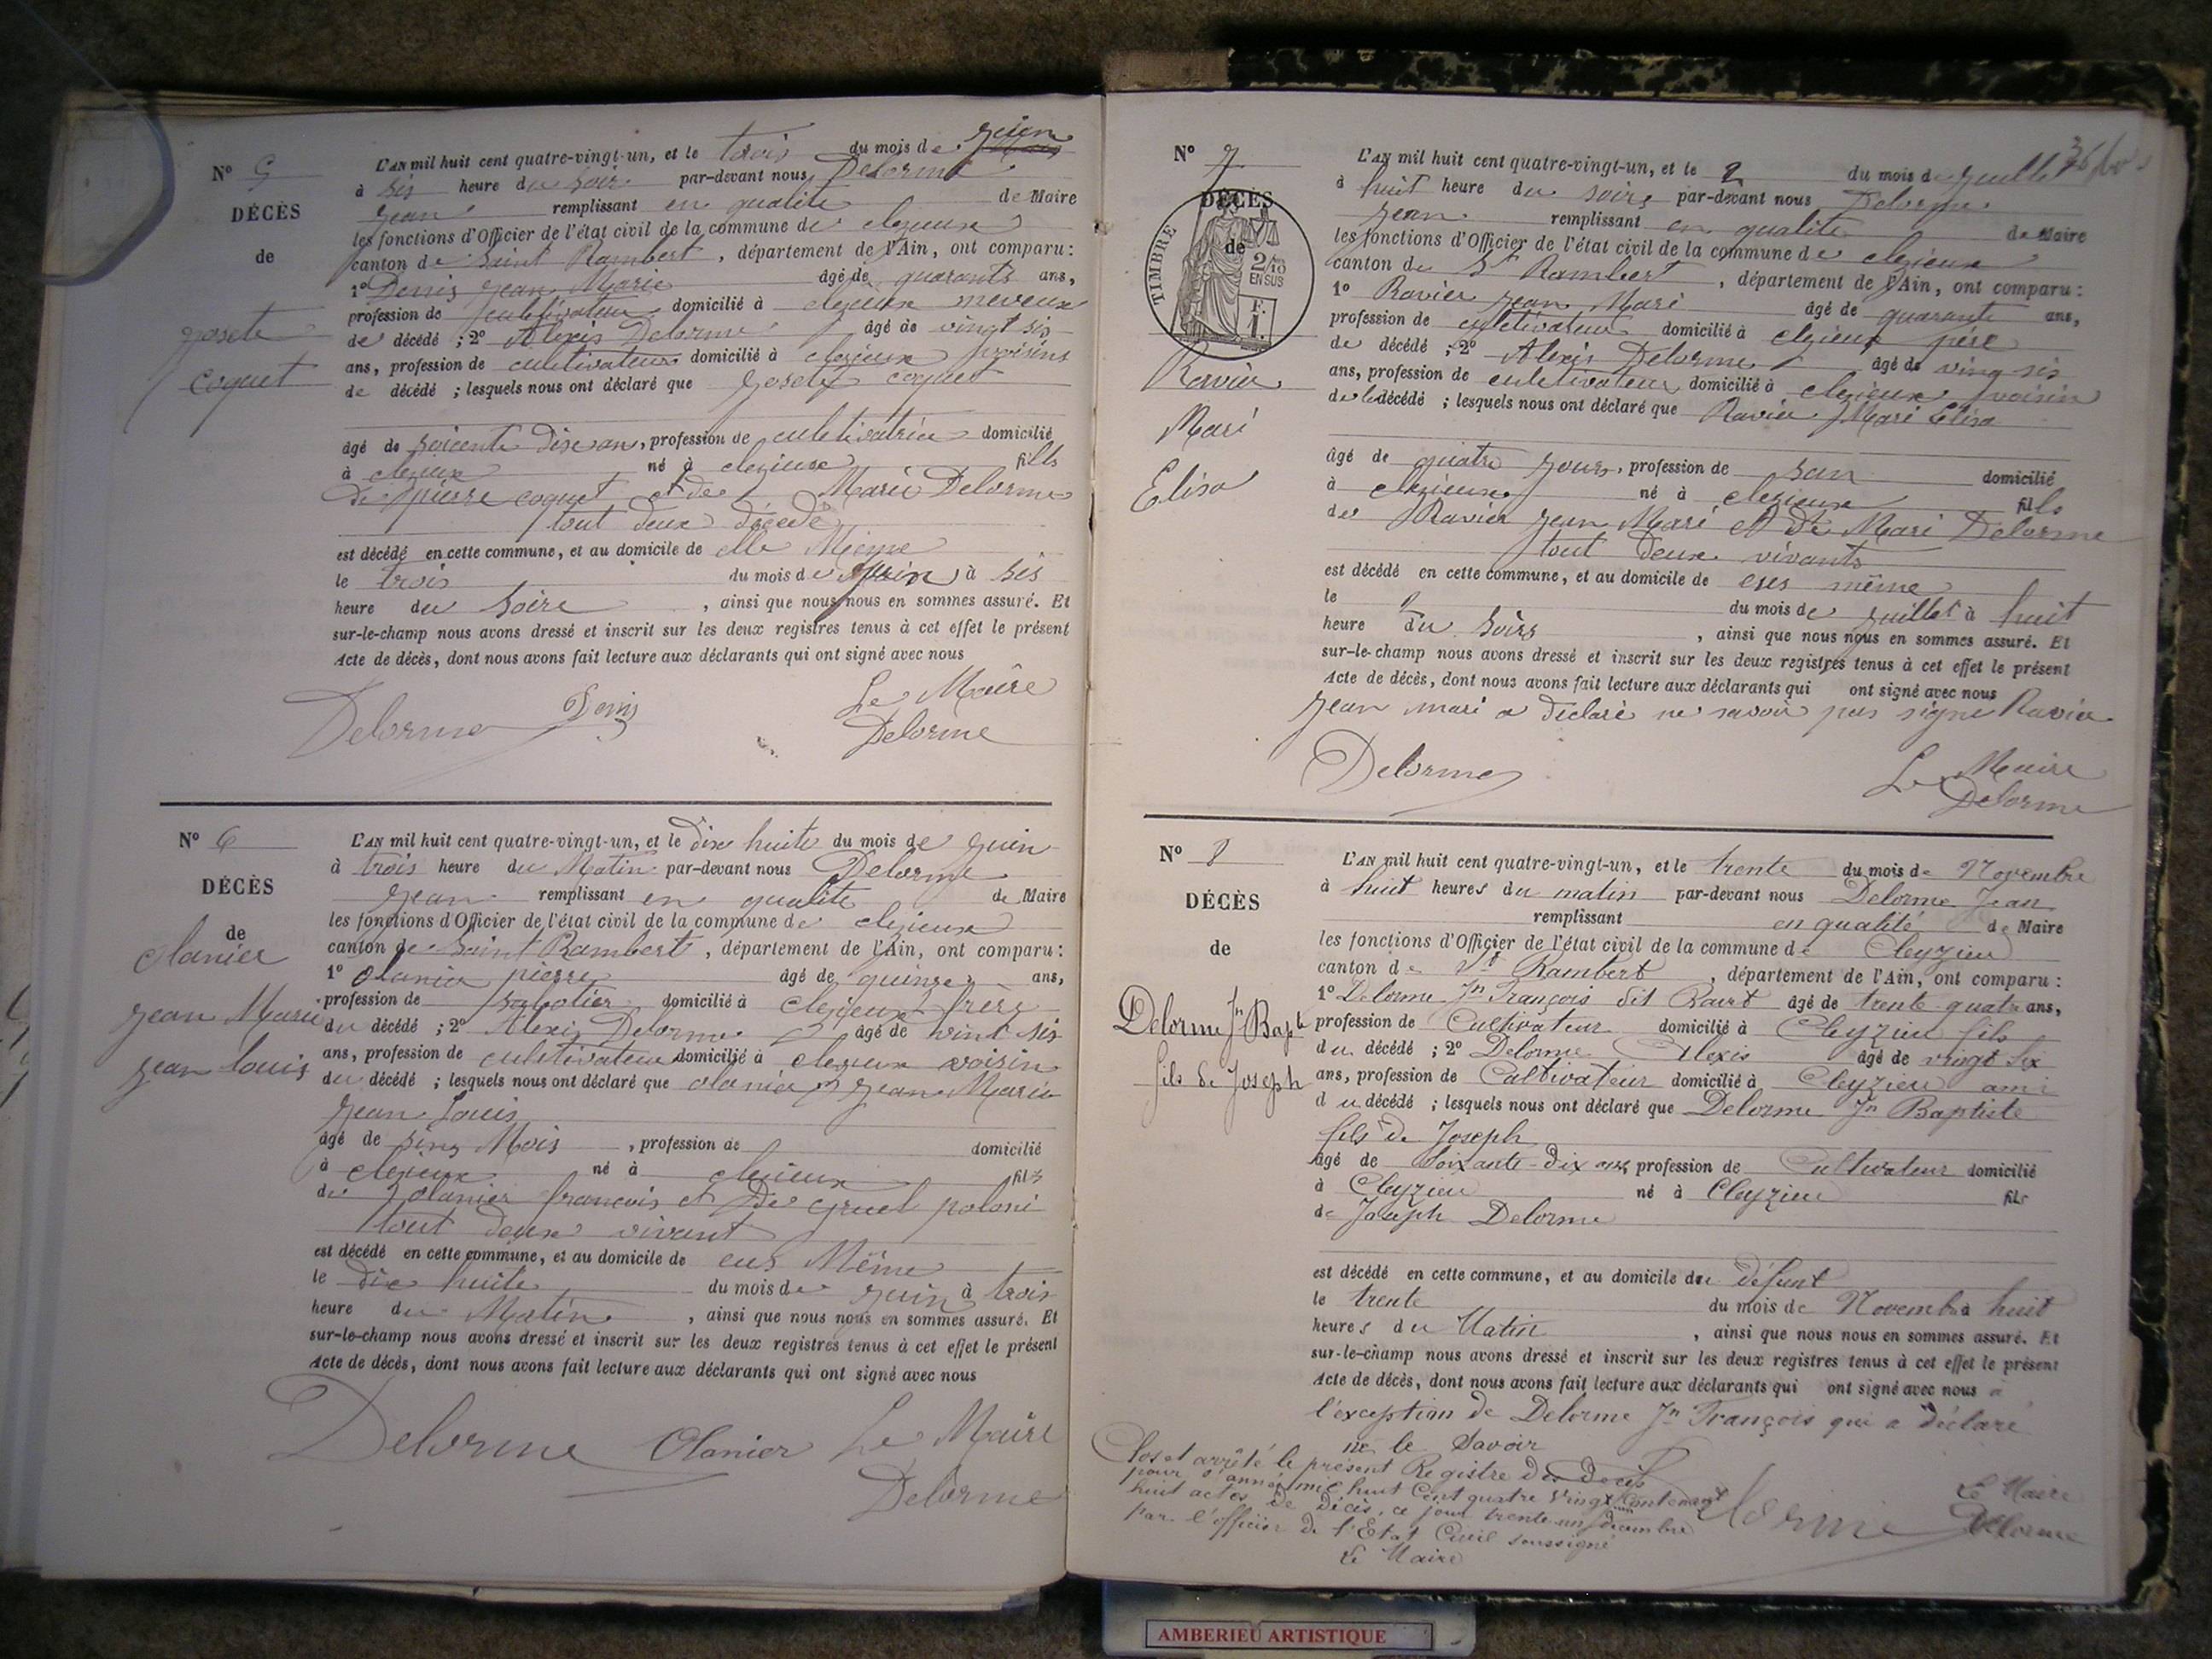 N° 5
DÉCÈS
de
josete
coquet
L'AN mil huit cent quatre-vingt-un, et le trois du mois de juin
à sis heure du soir par-devant nous Delorme
jean remplissant en qualite de Maire
les fonctions d'Officier de l'état civil de la commune de clezieux
canton de Saint Rambert, département de l'Ain, ont comparu :
1° Denis jean Marie âgé de quarante ans,
profession de cultivateur domicilié à clezieux neveux
de décédé ; 2° Alexis Delorme âgé de vingt sis
ans, profession de cultivateur domicilié à clezieux
de décédé ; lesquels nous ont déclaré que josete coquet
âgé de soicente dise an, profession de cultivatrice domicilié
à clezieux né à clezieux fills
de pierre coquet et de Marie Delorme
tout deux décedé
est décédé en cette commune, et au domicile de elle Mieme
le trois du mois de juin à sis
heure du soire, ainsi que nous nous en sommes assuré. Et
sur-le-champ nous avons dressé et inscrit sur les deux registres tenus à cet effet le présent
Acte de décès, dont nous avons fait lecture aux déclarants qui ont signé avec nous
Delorme Denis Le Maire
Delorme
N° 6
DÉCÈS
de
olanier
jean Marie
jean louis
L'AN mil huit cent quatre-vingt-un, et le dix huite du mois de juin
à trois heure du Matin par-devant nous Delorme
jean remplissant en qualite de Maire
les fonctions d'Officier de l'état civil de la commune de clezieux
canton de Saint Rambert, département de l'Ain, ont comparu :
1° olanier pierre âgé de quinze ans,
profession de sabotier domicilié à clezieux frère
du décédé ; 2° Alexis Delorme âgé de vint sis
ans, profession de cultivateur domicilié à clezeux voisin
du décédé ; lesquels nous ont déclaré que olanier jean Marie
jean Louis
âgé de sinq Mois, profession de domicilié
à clezieux né à clezieux fils
de olanier francois et De gruel poloni
tout deux vivant
est décédé en cette commune, et au domicile de eus Même
le dix huite du mois de juin à trois
heure du Matin, ainsi que nous nous en sommes assuré. Et
sur-le-champ nous avons dressé et inscrit sur les deux registres tenus à cet effet le présent
Acte de décès, dont nous avons fait lecture aux déclarants qui ont signé avec nous
Delorme Olanier Le Maire
Delorme
N° 7
DÉCÈS
de
TIMBRE
2/10 EN SUS
F. 1.
Ravier
Mari
Elisa
L'AN mil huit cent quatre-vingt-un, et le 2 du mois de juillet
à huit heure du soire par-devant nous Delorme
jean remplissant en qualite de Maire
les fonctions d'Officier de l'état civil de la commune de clezieux
canton de St Rambert, département de l'Ain, ont comparu :
1° Ravier jean Mari âgé de quarante ans,
profession de cultivateur domicilié à clezieux père
de décédé ; 2° Alexis Delorme âgé de ving sis
ans, profession de cultivateur domicilié à clezieux voisin
de la décédé ; lesquels nous ont déclaré que Ravier Mari Elisa
âgé de quatre jour, profession de san domicilié
à clezieux né à clezieux fils
de Ravier jean Mari et De Mari Delorme
tout deux vivants
est décédé en cette commune, et au domicile de même
le 2 du mois de juillet à huit
heure du soire, ainsi que nous nous en sommes assuré. Et
sur-le-champ nous avons dressé et inscrit sur les deux registres tenus à cet effet le présent
Acte de décès, dont nous avons fait lecture aux déclarants qui ont signé avec nous Ravier
jean mari a declaré ne savoir pas signe
Delorme Le Maire
Delorme
N° 8
DÉCÈS
de
Delorme Jn Bapte
fils de Joseph
L'AN mil huit cent quatre-vingt-un, et le trente du mois de Novembre
à huit heures du matin par-devant nous Delorme Jean
remplissant en qualité de Maire
les fonctions d'Officier de l'état civil de la commune de Cleyzieu
canton de St Rambert, département de l'Ain, ont comparu :
1° Delorme Jn François dit âgé de trente quatre ans,
profession de Cultivateur domicilié à Cleyzieu fils
du décédé ; 2° Delorme Alexis âgé de vingt six
ans, profession de Cultivateur domicilié à Cleyzieu ami
du décédé ; lesquels nous ont déclaré que Delorme Jn Baptiste
fils de Joseph
âgé de Soixante-dix ans, profession de Cultivateur domicilié
à Cleyzieu né à Cleyzieu fils
de Joseph Delorme
est décédé en cette commune, et au domicile du défunt
le trente du mois de Novembre à huit
heures du Matin, ainsi que nous nous en sommes assuré. Et
sur-le-champ nous avons dressé et inscrit sur les deux registres tenus à cet effet le présent
Acte de décès, dont nous avons fait lecture aux déclarants qui ont signé avec nous à
l'exception de Delorme Jn François qui a déclaré
ne le Savoir
Clos et arrêté le présent Registre des Décès
pour l'année mil huit Cent quatre vingt un Contenant
huit actes de Décès, ce jour trente-un Décembre
par l'officier de l'Etat Civil soussigné
Le Maire
Delorme Le Maire
Delorme
AMBERIEU ARTISTIQUE